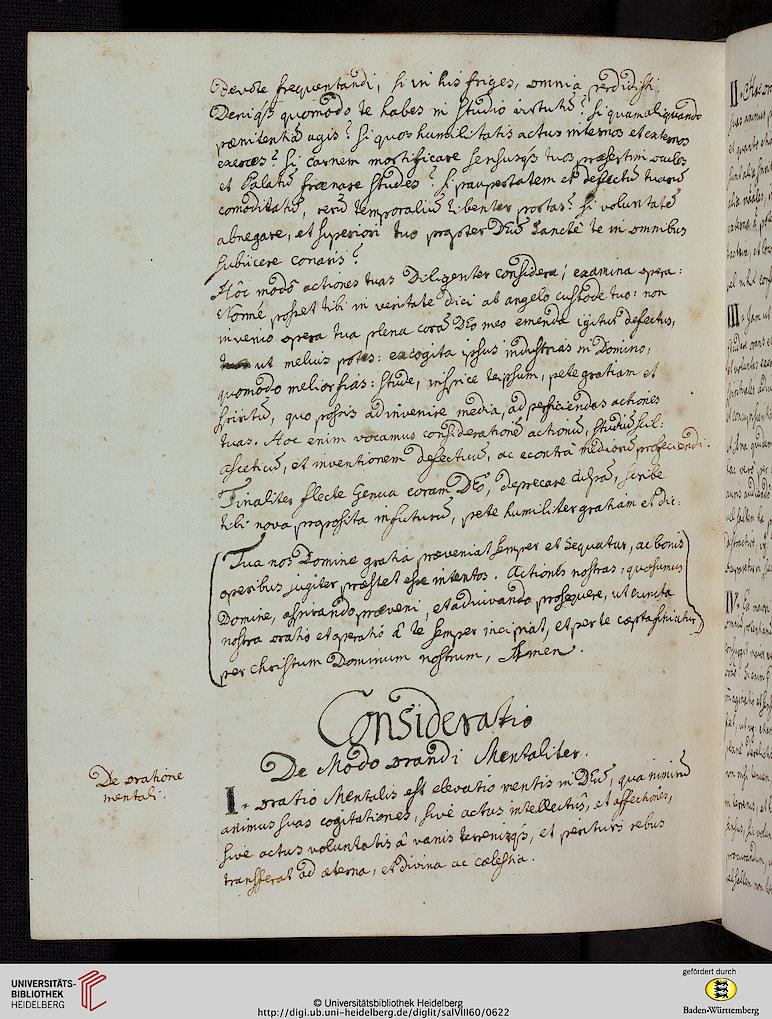 devote frequentandi, si in his friges, omnia perdidisti.
Deniq̃ꝫ quomodo te habes in studio virtutũ? si quam aliquando
pœnitentiã agis? si quos humilitatis actus internos et externos
exerces? si carnem mortificare sensusq̃ꝫ tuos præsertim oculos
et Palatũ frœnare studes? si paupertatem et defectũ tuarũ
comoditatũ, rerũ temporaliũ libenter portas? si voluntatẽ
abnegare, et superiori tuo propter Deũ sancte te in omnibus
subiicere conaris?
Hôc modô actiones tuas diligenter considera; examina opera:
Nonnè posset tibi in veritate dici ab angelo custode tuo: non
invenio opera tua plena corã DEo meo emenda igitur defectus,
ut melius potes: excogita ipsus industrias in Domino,
quomodo melior fias: stude, inspice teipsum, pete gratiam et
spiritũ, quo possis adinvenire media, ad perficiendas actiones
tuas. Hoc enim vocamus consideratione actionũ, studiũ scil:
asceticũ, et inventionem defectuũ, ac econtra mediorũ proficiendi.
Finaliter flecte genua coram DEo, deprecare culpã, scribe
tibi nova proposita in futurũ, pete humiliter gratiam et dic:
Tua nos Domine gratia præveniat semper et sequatur, ac bonis
operibus jugiter præstet esse intentos. Actiones nostras, quæsumus
Domine, aspirando præveni, et adiuvando prosequere, ut cuncta
nostra oratio et operatio â te semper incipiat, et per te cæpta finiatur
per Christum Dominum nostrum, Amen.
Consideratio
De Modo orandi Mentaliter.
De oratione
mentali.
I. Oratio Mentalis est elevatio mentis in Deũ, qua nimirũ
animus suas cogitationes, sive actus intellectus, et affectiones,
sive actus voluntatis â vanis terrenisq̃ꝫ, et perituris rebus
transfferat ad æterna, et divina ac cœlestia.
II.
III. Jam ut
IV.
UNIVERSITÄTS-
BIBLIOTHEK
HEIDELBERG
© Universitätsbibliothek Heidelberg
http://digi.ub.uni-heidelberg.de/diglit/salVIII60/0622
gefördert durch
Baden-Württemberg